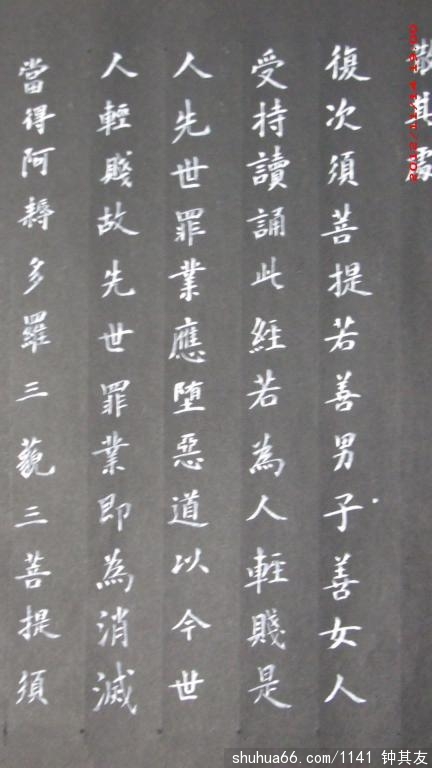 敬其處
復次須菩提若善男子善女人
受持讀誦此經若為人輕賤是
人先世罪業應堕惡道以今世
人輕賤故先世罪業即為消滅
當得阿耨多羅三藐三菩提須
shuhua66.com/1141 钟其友